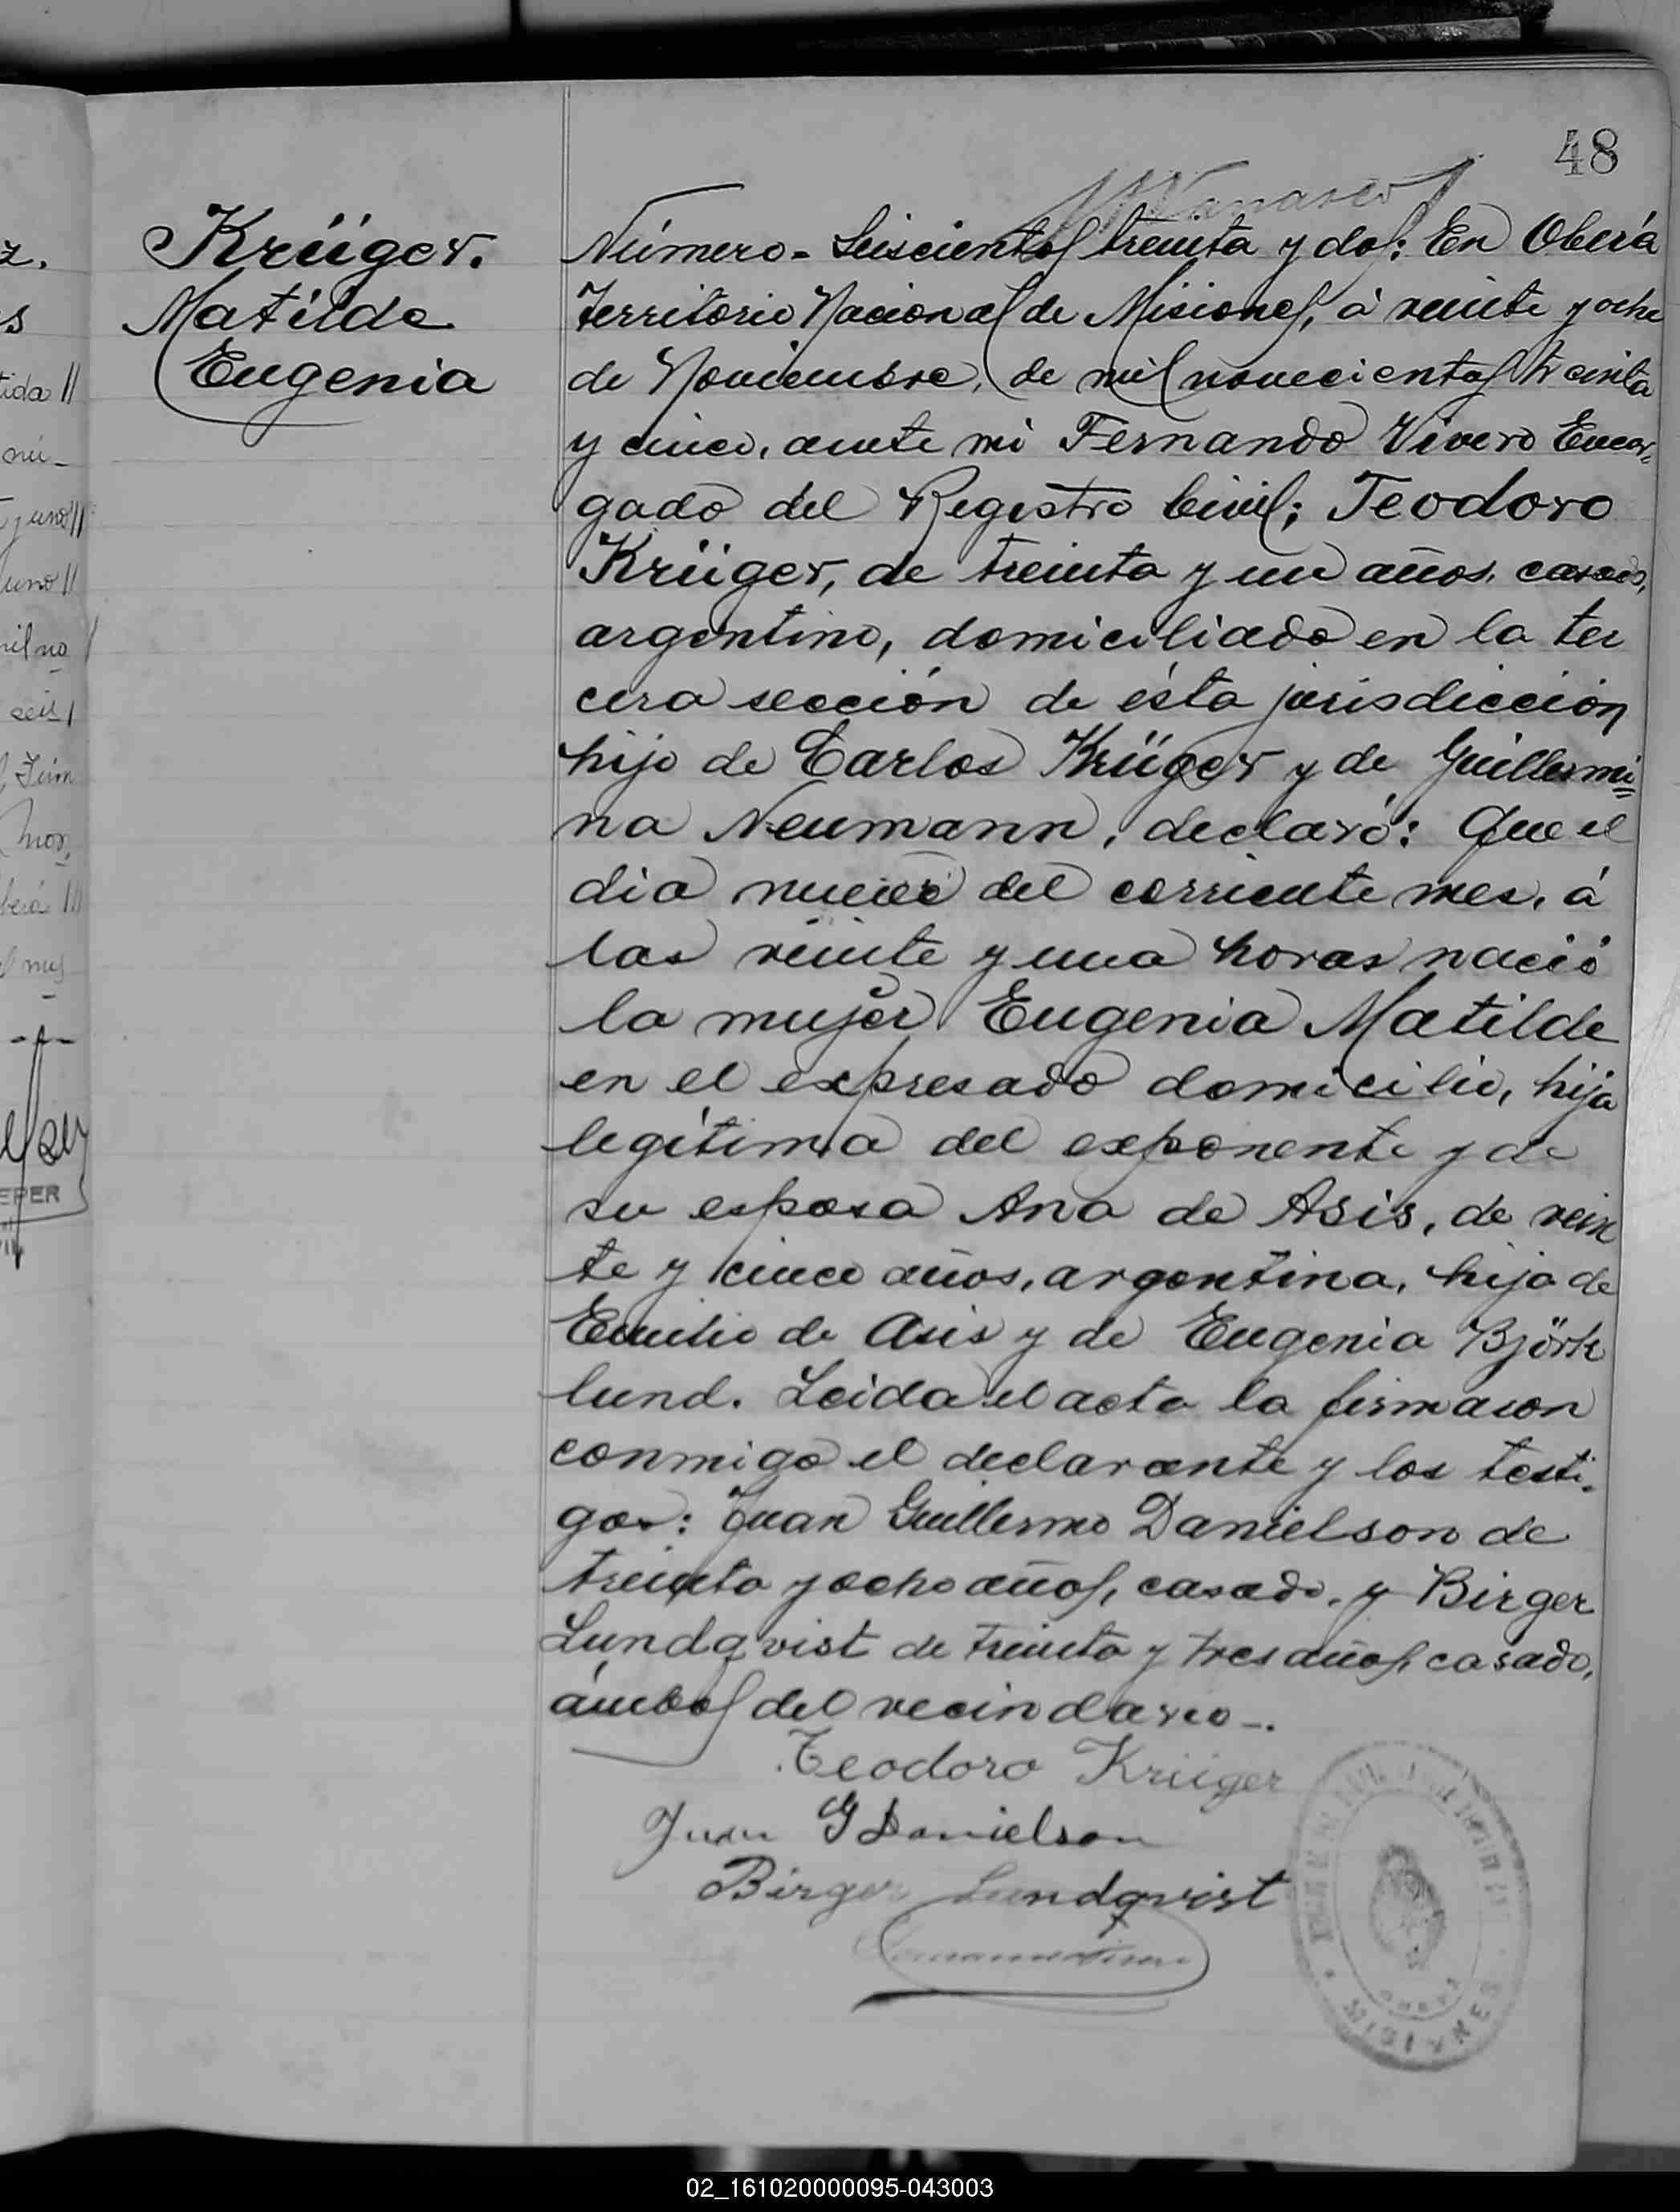 48
Krüger.
Matilde
Eugenia
Número - Seiscientos treinta y dos: En Oberá
Territorio Nacional de Misiones, á veinte y ocho
de Noviembre, de mil novecientos treinta
y cinco, ante mi Fernando Vivero Encar-
gado del Registro Civil; Teodoro
Krüger, de treinta y un años, casado,
argentino, domiciliado en la ter
cera sección de ésta jurisdicción
hijo de Carlos Krüger y de Guillermi=
na Neumann, declaró: Que el
dia nueve del corriente mes, á
las veinte y una horas nació
la mujer Eugenia Matilde
en el expresado domicilio, hija
legítima del exponente y de
su esposa Ana de Asis, de vein
te y cinco años, argentina, hija de
Emilio de Asis y de Eugenia Björk
lund. Leida el acta la firmaron
conmigo el declarante y los testi-
gos: Juan Guillermo Danielson de
treinta y ocho años, casado, y Birger
Lundqvist de treinta y tres años, casado,
ámbos del vecindario -.
Teodoro Krüger
Juan G Danielson
Birger Lundqvist
MISIONES
EPER
02_161020000095-043003